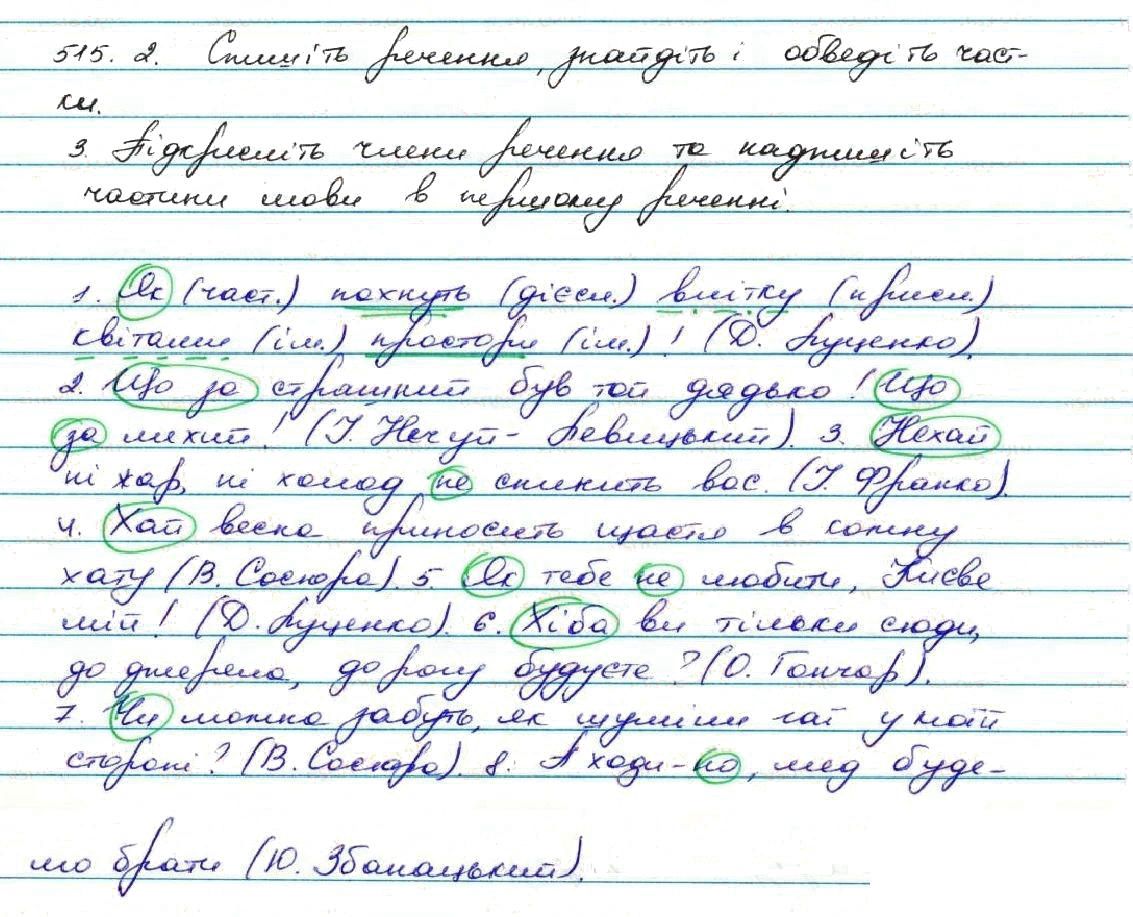 515. 2. Спишіть речення, знайдіть і обведіть част-
ки.
3. Підкресліть члени речення та надпишіть
частини мови в першому реченні.
1. Як (част.) пахнуть (дієсл.) влітку (присл.)
квітами (ім.) простори (ім.)! (Д. Луценко).
2. Що за страшний був той дядько! Що
за лихий! (І. Нечуй-Левицький). 3. Нехай
ні жар, ні холод не спинить вас. (І. Франко).
4. Хай весна приносить щастя в кожну
хату (В. Сосюра). 5. Як тебе не любити, Києве
мій! (Д. Луценко). 6. Хіба ви тільки сюди,
до джерела, дорогу будуєте? (О. Гончар).
7. Чи можна забуть, як шуміли гаї у моїй
стороні? (В. Сосюра). 8. А ходи-но, мед буде-
мо брати (Ю. Збанацький).